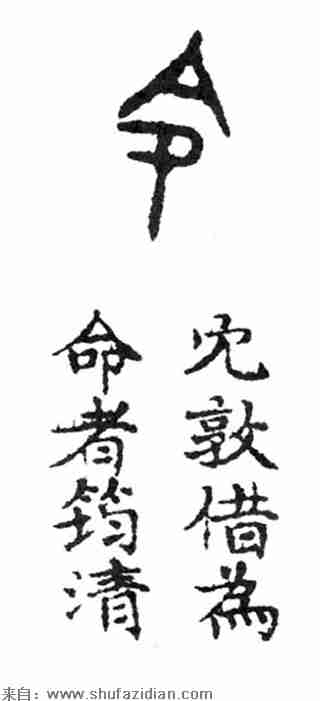 令
敦借為
命者筠清
来自：www.shufazidian.com